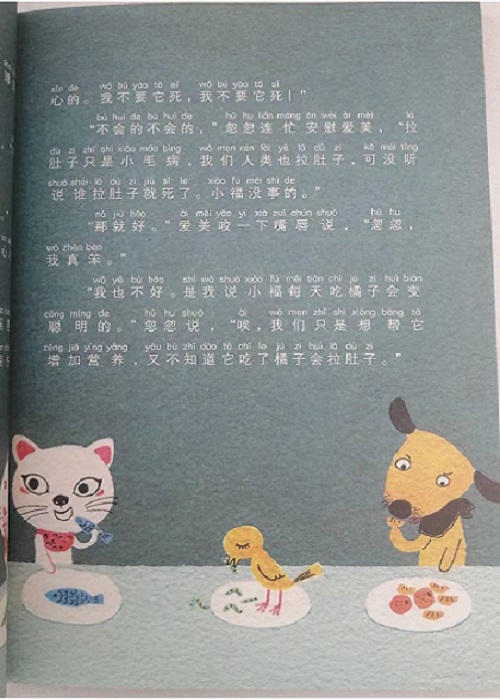 xīn de wǒ bú yào tā sǐ wǒ bú yào tā sǐ
心的。我不要它死，我不要它死！”
bú huì de bú huì de hū hu lián máng ān wèi ài měi lā
“不会的不会的，”忽忽连忙安慰爱美，“拉
dù zi zhǐ shì xiǎo máo bìng wǒ men rén lèi yě lā dù zi kě méi tīng
肚子只是小毛病，我们人类也拉肚子，可没听
shuō shéi lā dù zi jiù sǐ le xiǎo fú méi shì de
说谁拉肚子就死了。小福没事的。”
nà jiù hǎo ài měi yǎo yí xià zuǐ chún shuō hū hu
“那就好。”爱美咬一下嘴唇说，“忽忽，
wǒ zhēn bèn
我真笨。”
wǒ yě bù hǎo shì wǒ shuō xiǎo fú měi tiān chī jú zi huì biàn
“我也不好。是我说小福每天吃橘子会变
cōng míng de hū hu shuō ài wǒ men zhǐ shì xiǎng bāng tā
聪明的。”忽忽说，“唉，我们只是想帮它
zēng jiā yíng yǎng yòu bù zhī dào tā chī le jú zi huì lā dù zi
增加营养，又不知道它吃了橘子会拉肚子。”